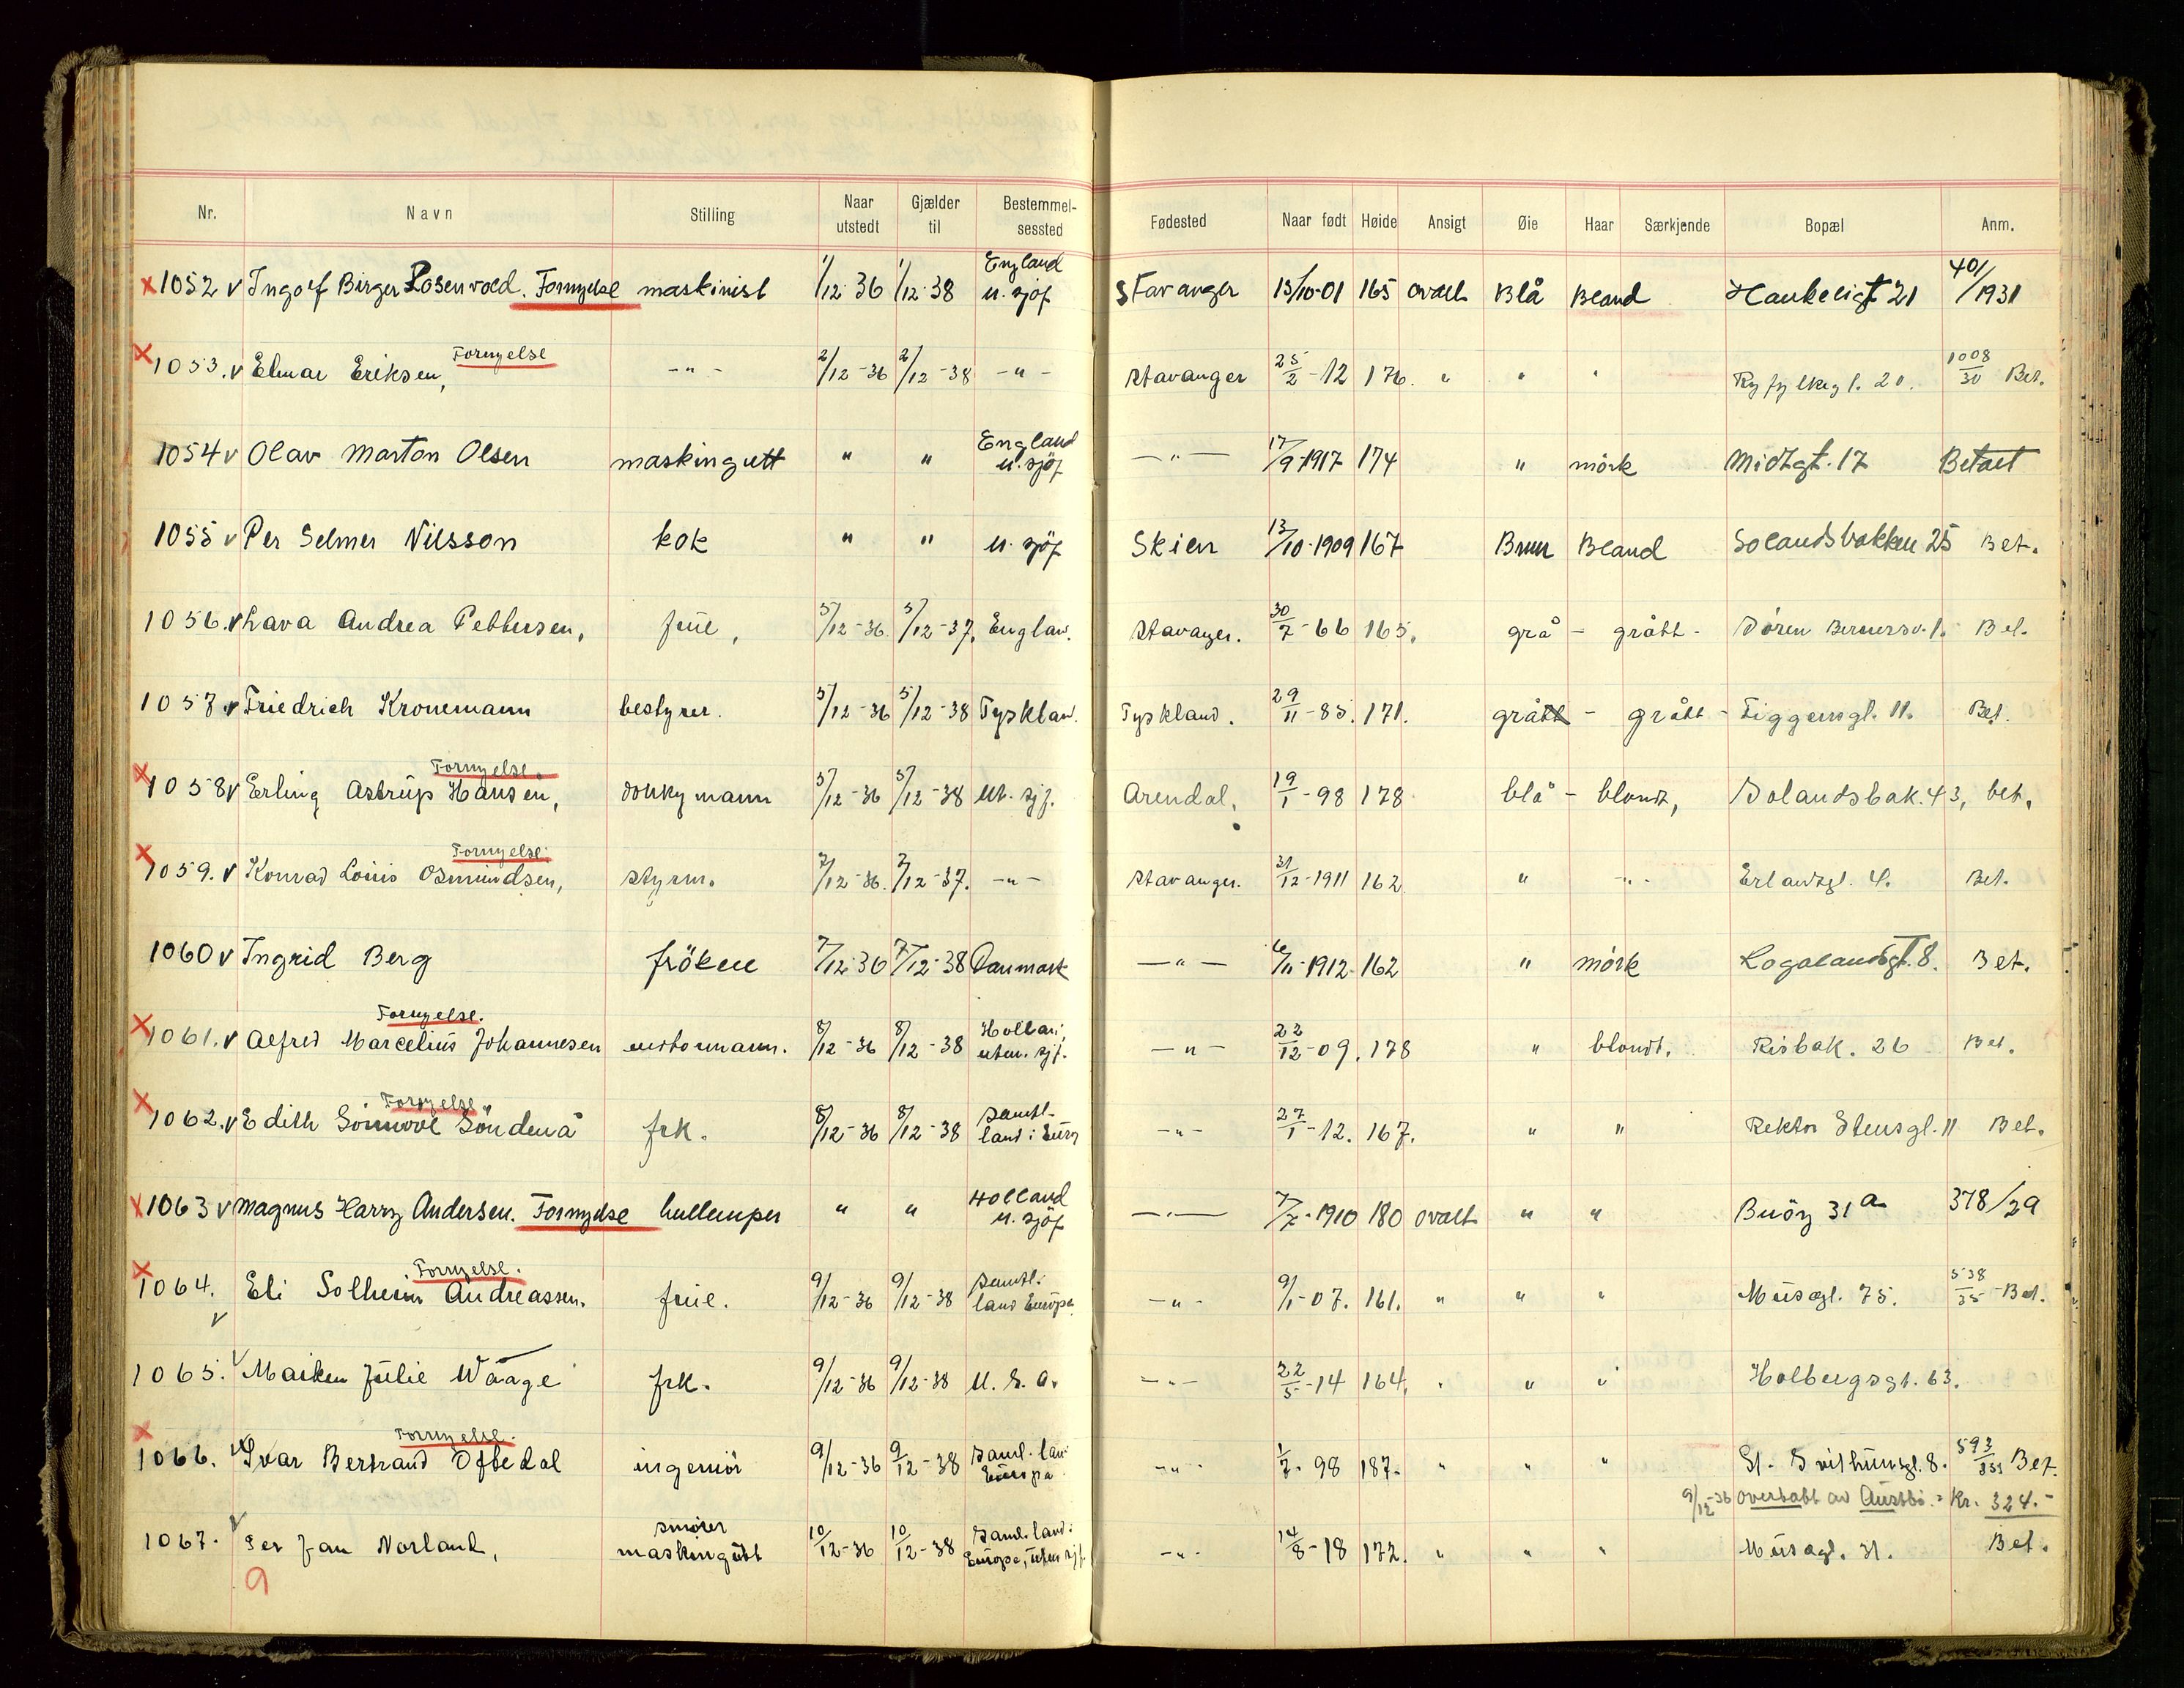 Nr. Navn Stilling Naar utstedt Gjælder til Bestemmel-sessted Fødested Naar født Høide Ansigt Øie Haar Særkjende Bopæl Anm.
x 1052 v Ingolf Birger Rosenvold. Fornyelse maskinist 1/12-36 1/12-38 England u. sjöf Stavanger 13/10-01 165 ovalt Blå Bland Haukeligt 21 40/1931
x 1053. v Elmar Eriksen, Fornyelse -"- 2/12-36 2/12-38 -"- Stavanger 25/2-12 176. " " " Ryfylkegt. 20. 1008/30 Bet.
1054 v Olav Marton Olsen maskingutt " " England u. sjöf -"- 17/9-1917 174 " mörk Midtgt. 17 Betalt
1055 v Per Selmer Nilsson kok " " u. sjöf Skien 13/10-1909 167 Brun Bland Solandsbakken 25 Bet.
1056. v Lava Andrea Pettersen, frue, 5/12-36 5/12-37. Englan. Stavanger. 30/7-66 165. grå - grått - Sören Bernersv. 1. Bet.
1057 v Friedrich Kronemann bestyrer. 5/12-36 5/12-38 Tysklan. Tyskland. 29/11-85. 171. grått - grått - Tiggemsgt. 11. Bet.
x 1058 v Erling Astrup Hansen, Fornyelse. donkymann 5/12-36 5/12-38 ut. sjf. Arendal. 19/1-98 178 blå - blondt, Solandsbak. 43, bet.
x 1059. v Konrad Louis Osmundsen, Fornyelse. styrm. 7/12-36. 7/12-37. -"- Stavanger. 31/12-1911 162 " -"- Erlandsgt. 4. Bet.
1060 v Ingrid Berg fröken 7/12-36 7/12-38 Danmark -"- 6/11-1912. 162 " mörk Rogalandsgt. 8. Bet.
x 1061. v Alfred Marcelius Johannesen Fornyelse. motormann. 8/12-36 8/12-38 Hollan: uten. sjf. -"- 22/12-09. 178 " blondt. Risbak. 26 Bet.
x 1062. v Edith Sönnove Söndenå Fornyelse frk. 8/12-36 8/12-38 Samtl- land i Euro -"- 27/1-12. 167. " " Rektor Stensgt. 11 Bet.
x 1063 v Magnus Harry Andersen. Fornyelse kullemper " " Holland u. sjöf -"- 7/7-1910 180 ovalt " " Buöy 31 a 378/29
x 1064. v Eli Solheim Andreassen. Fornyelse. frue. 9/12-36 9/12-38 Samtl. land Europa -"- 9/1-07. 161. " " " Musegt. 75. 538/35 - Bet.
1065. v Maiken Julie Waage frk. 9/12-36 9/12-38 U. S. A. -"- 22/5-14 164. " " " Holbergsgt. 63.
x 1066. v Ivar Bertrand Oftedal Fornyelse. ingeniör 9/12-36 9/12-38 Saml. lan Europa -"- 1/7-98 187. " " " St. Svithunsgt. 8. 593/ Bet.
9/12-36 overtatt av Austbö. = Kr. 324.-
1067. v Per Jan Norland, smörer maskingutt 10/12-36 10/12-38 Saml. land: Europa, uten sjf. -"- 14/8-18 172. " " " Musegt. 31. Bet.
9